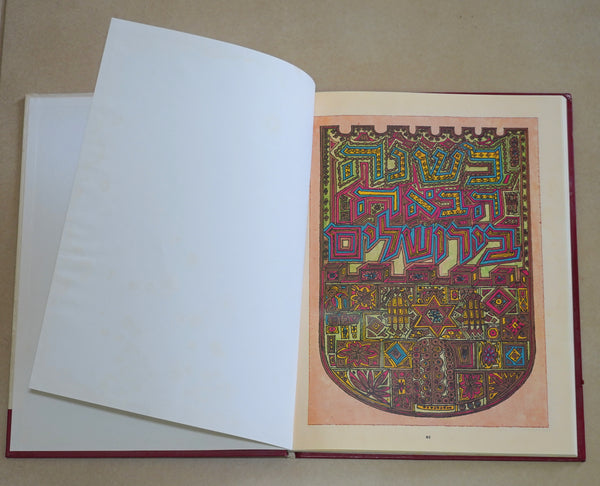 בשנה
הבאה
בירושלים